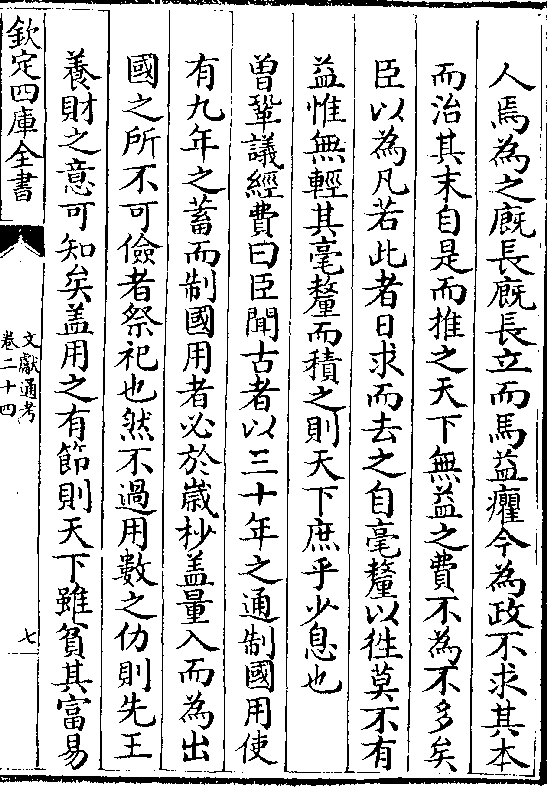 人焉為之廐長廐長立而馬益癯今為政不求其本
而治其末自是而推之天下無益之費不為不多矣
臣以為凡若此者日求而去之自毫釐以徃莫不有
益惟無輕其毫釐而積之則天下庶乎少息也
曽鞏議經費曰臣聞古者以三十年之通制國用使
有九年之蓄而制國用者必於嵗杪盖量入而為出
國之所不可儉者祭祀也然不過用數之仂則先王
養財之意可知矣盖用之有節則天下雖貧其富易
欽定四庫全書
文獻通考
卷二十四
七